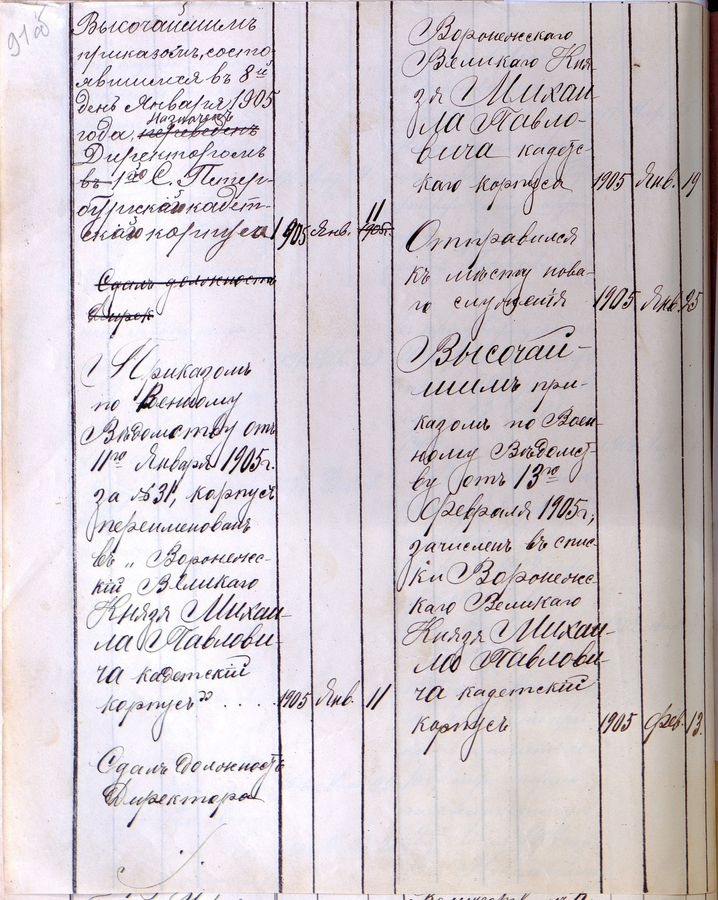 Высочайшимъ
приказомъ, состо-
явшимся въ 8й
день Января 1905
Назначенъ
года, переведенъ
Директоромъ
въ 1го С. Петер-
бургскаго кадет-
скаго корпуса 1905 Янв. 11
1905г.
Сдалъ должность
Дирек
Приказомъ
по Военному
Вѣдомству отъ
11го Января 1905 г.
за № 31, корпусъ
переименованъ
въ „Воронежс-
кій Великаго
Князя Михаи-
ла Павлови-
ча кадетскій
корпусъ" . . . . 1905 Янв. 11
Сдалъ должность
Директора
Воронежскаго
Великаго Кня-
зя Михаи-
ла Павло-
вича кадетс-
каго корпуса 1905 Янв. 19
Отправился
къ мѣсту нова-
го служенія 1905 Янв. 25
Высочай-
шимъ при-
казомъ по Воен-
ному Вѣдомст-
ву отъ 13го
Февраля 1905 г.,
зачисленъ въ спис-
ки Воронежс-
каго Великаго
Князя Михаи-
ла Павлови-
ча кадетскій
корпусъ 1905 Фев. 13.